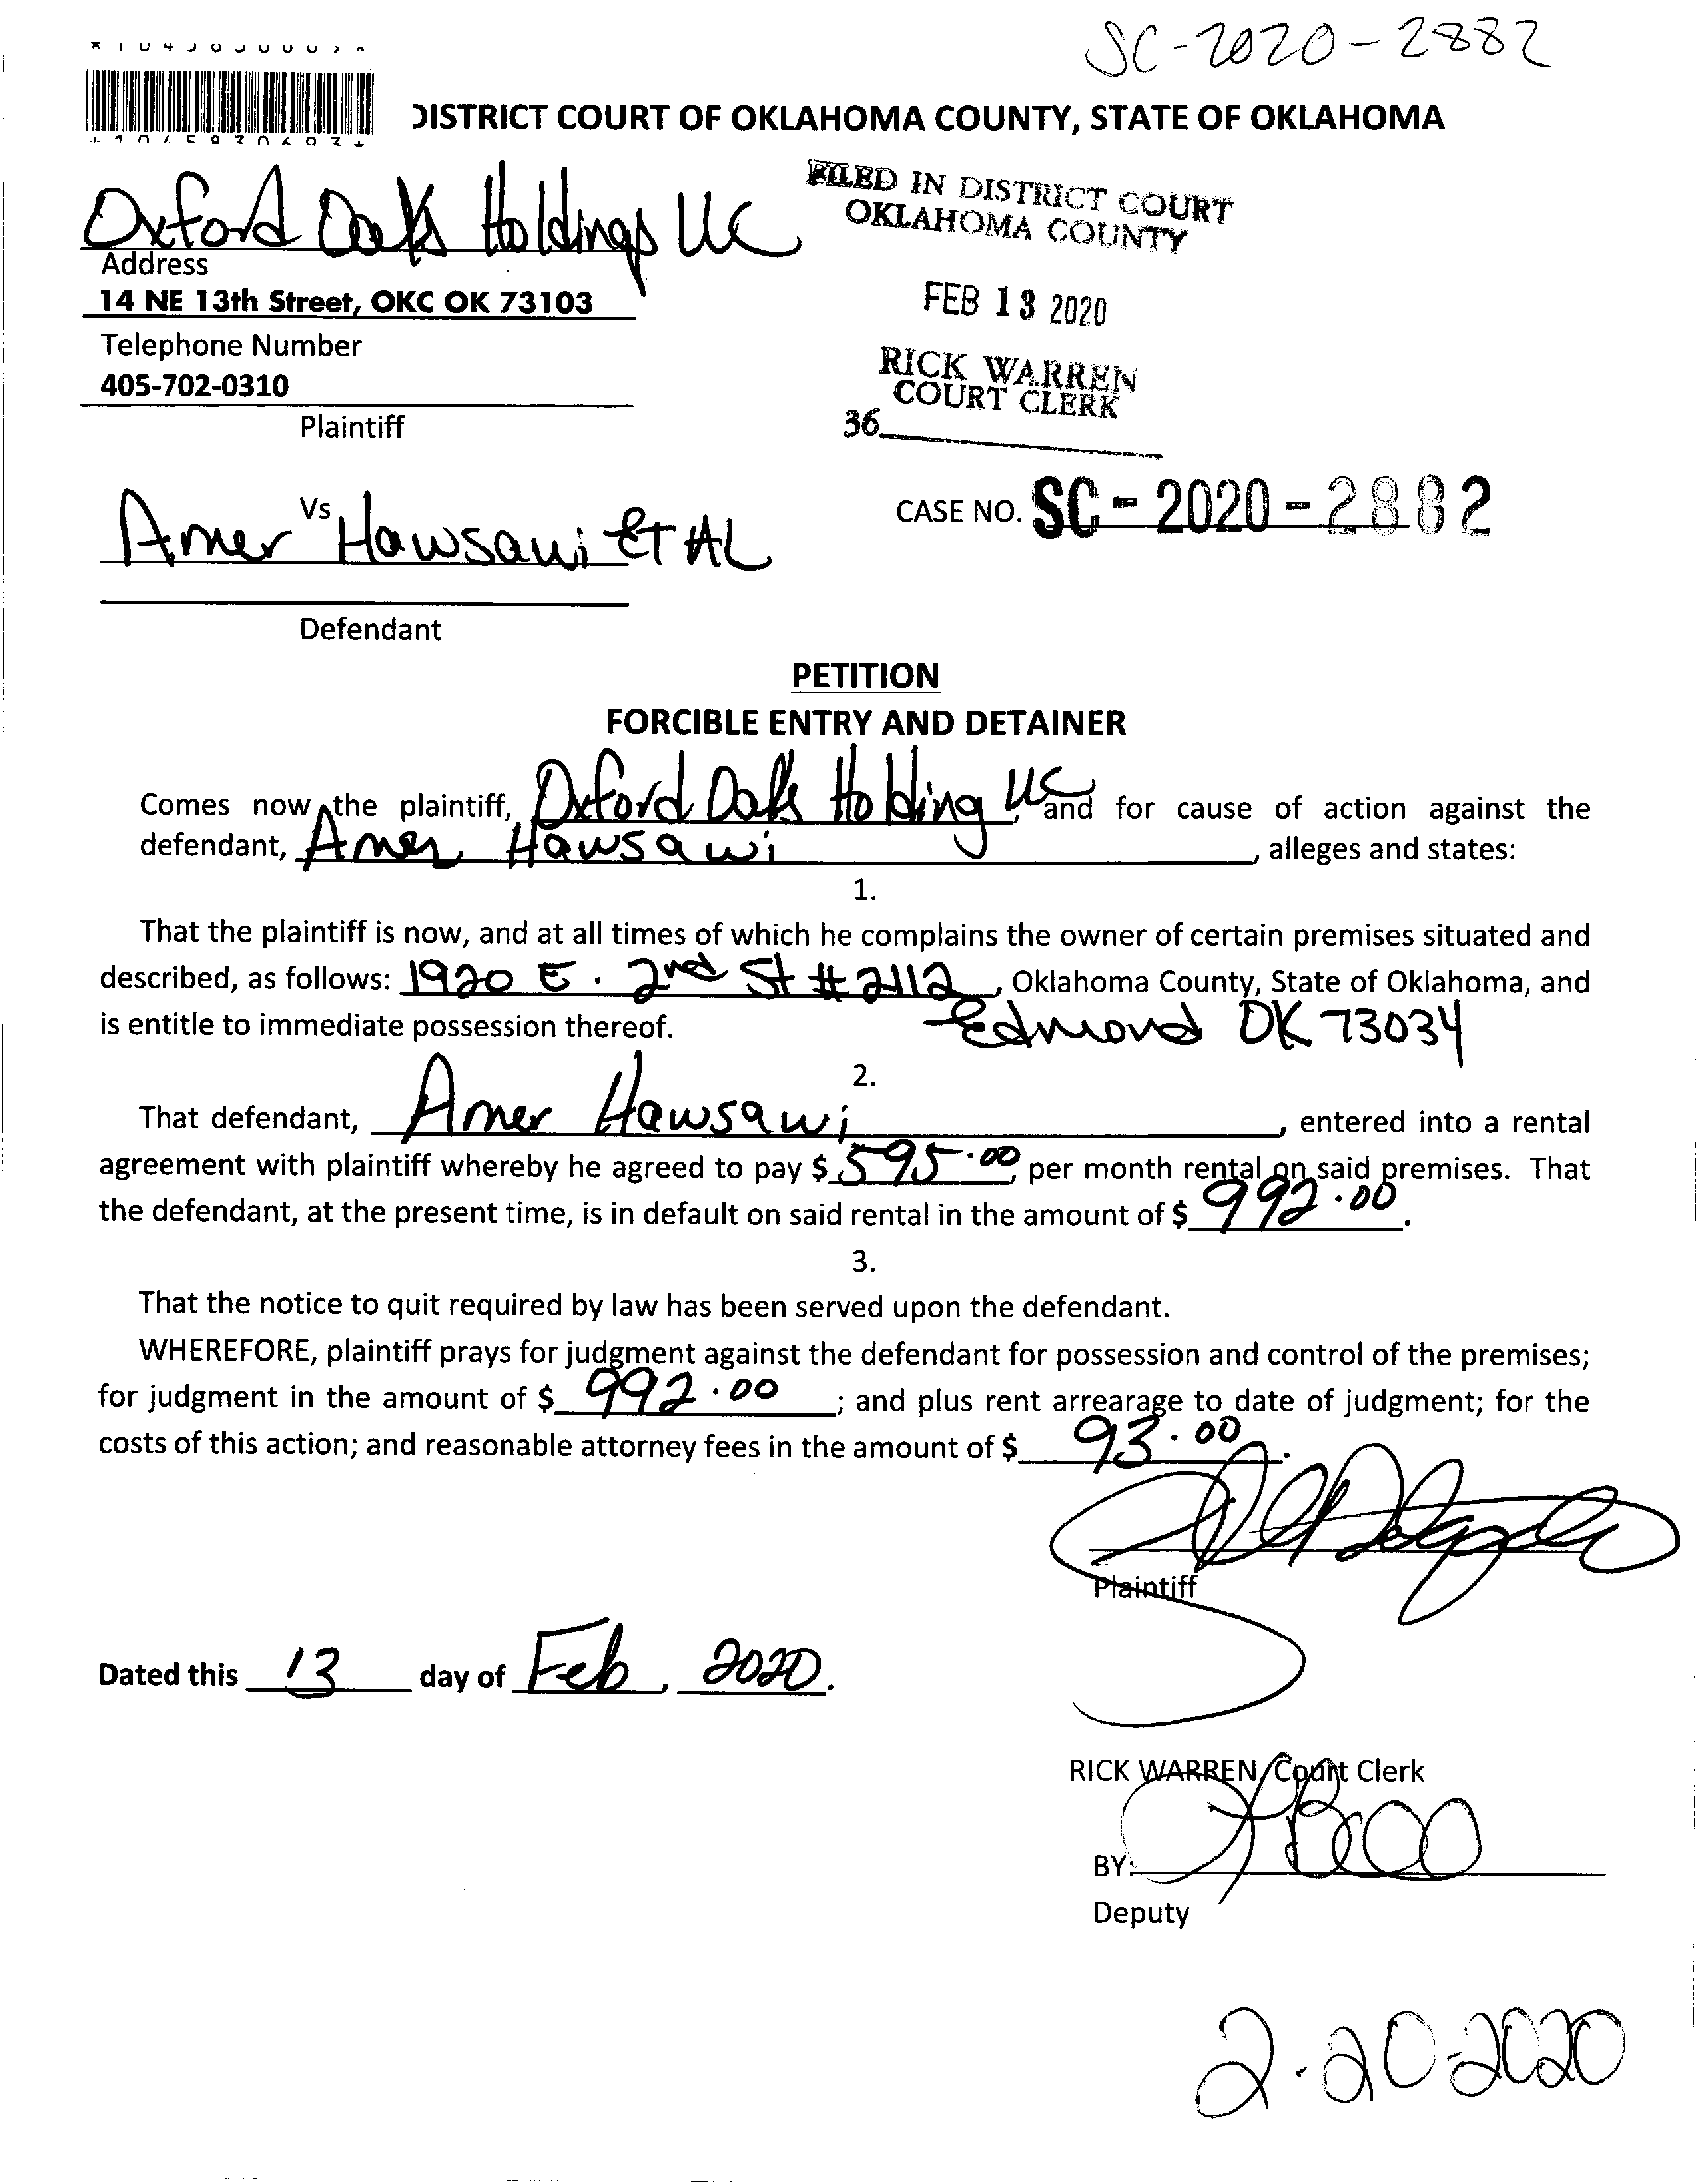 SC-2020-2882
DISTRICT COURT OF OKLAHOMA COUNTY, STATE OF OKLAHOMA
Oxford Oaks Holdings LLC
FILED IN DISTRICT COURT
OKLAHOMA COUNTY
Address
14 NE 13th Street, OKC OK 73103
FEB 13 2020
Telephone Number
405-702-0310
RICK WARREN
COURT CLERK
Plaintiff
36
Vs
Amer Hawsawi ET AL
CASE NO. SC-2020-2882
Defendant
PETITION
FORCIBLE ENTRY AND DETAINER
Comes now the plaintiff, Oxford Oaks Holding LLC, and for cause of action against the
defendant, Amer Hawsawi, alleges and states:
1.
That the plaintiff is now, and at all times of which he complains the owner of certain premises situated and
described, as follows: 1920 E. 2nd St # 2112, Oklahoma County, State of Oklahoma, and
is entitle to immediate possession thereof. Edmond OK 73034
2.
That defendant, Amer Hawsawi, entered into a rental
agreement with plaintiff whereby he agreed to pay $ 595.00, per month rental on said premises. That
the defendant, at the present time, is in default on said rental in the amount of $ 992.00.
3.
That the notice to quit required by law has been served upon the defendant.
WHEREFORE, plaintiff prays for judgment against the defendant for possession and control of the premises;
for judgment in the amount of $ 992.00; and plus rent arrearage to date of judgment; for the
costs of this action; and reasonable attorney fees in the amount of $ 93.00.
Plaintiff
Dated this 13 day of Feb, 2020.
RICK WARREN, Court Clerk
BY:
Deputy
2-20-2020